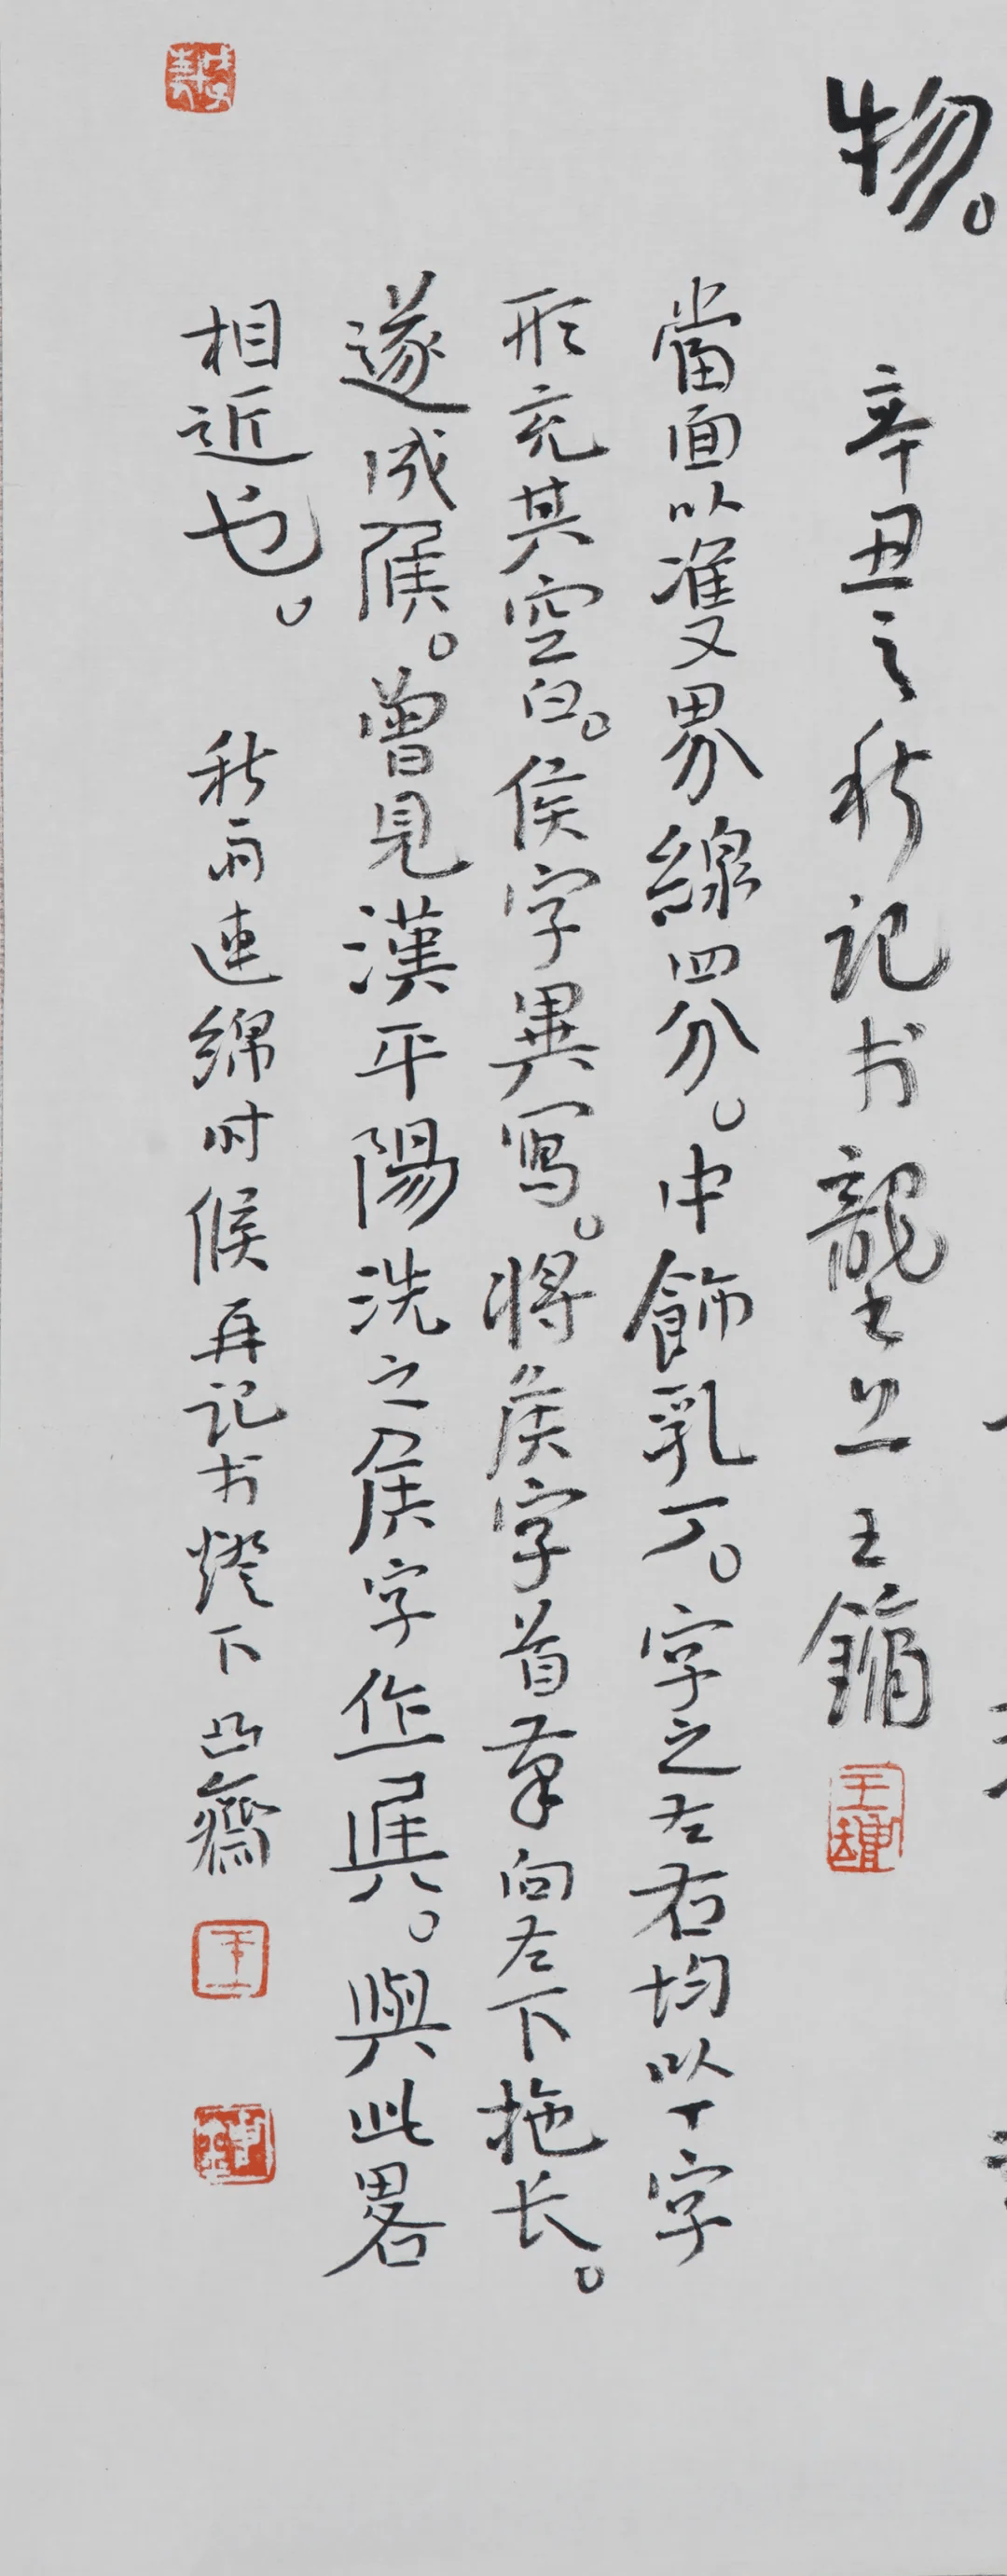 物。 辛丑之秋记於壟上 王鏞
當面以雙界線四分。中飾乳丁。字之左右均以丁字
形充其空白。侯字異寫。將矦字首筆向左下拖长。
遂成矦。曾見漢平陽洗之矦字作。與此畧
相近也。 秋雨連綿时候再记於燈下 凸齋
王鏞
王